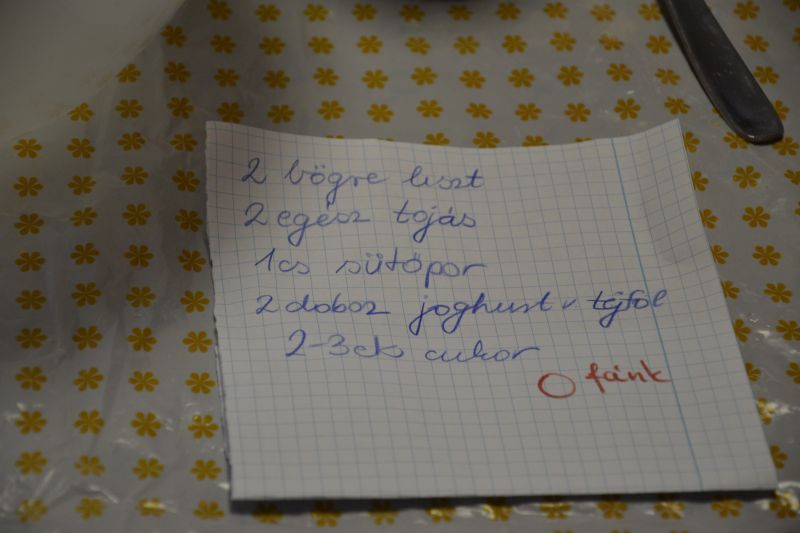 2 bögre liszt
2 egész tojás
1cs sütőpor
2 doboz joghurt v tejföl
2-3ek cukor
fánk